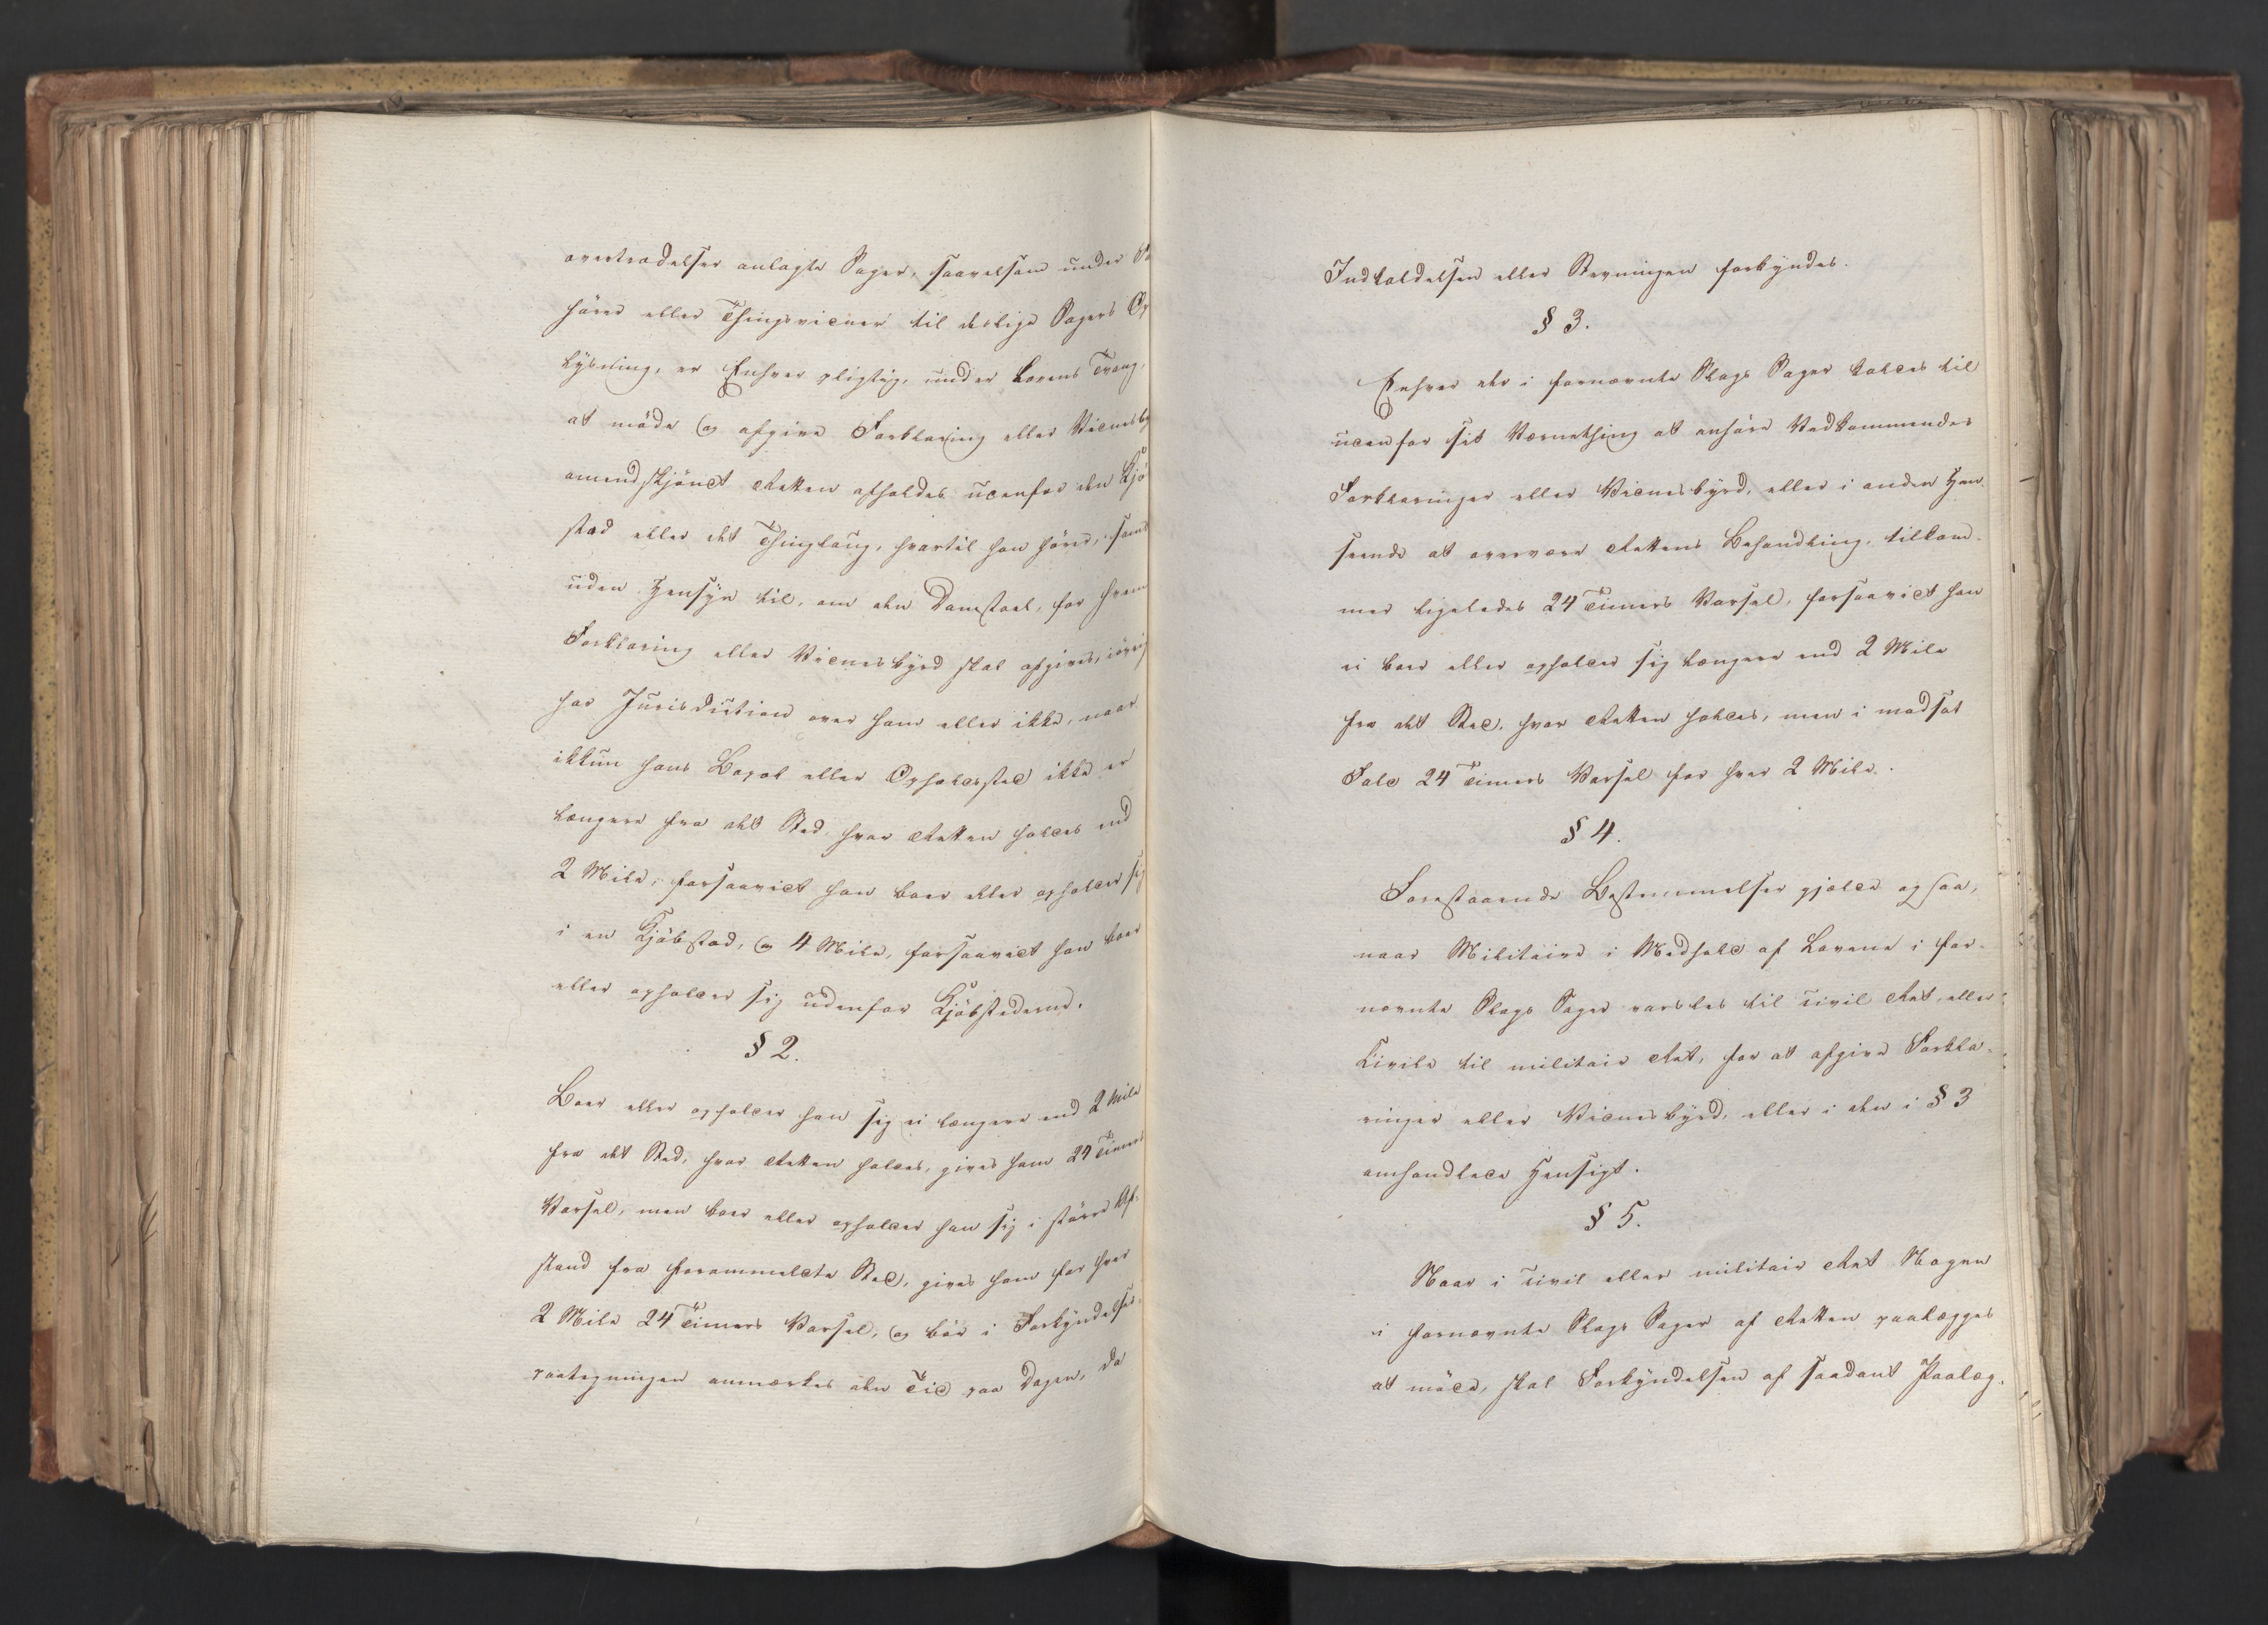 overtrædelser anlagte Sager, saavelsom under
hører eller Thingsvidner til deslige Sagers Op
lysning, er Enhver pligtig, under Lovens Tvang,
at møde og afgive Forklaring eller Vidnesby
omendskjöndt Retten afholdes udenfor den Kjö
stad eller det Thinglaug, hvortil han hører, samt
uden Hensyn til, om den Domstoel, for hvem
Forklaring eller Vidnesbyrd skal afgives, iövrig
har Jurisdiction over ham eller ikke, naar
ikkun hans Bopæl eller Opholdssted ikke er
længere fra det Sted, hvor Retten holdes end
2 Mile, forsaavidt han boer eller opholder sig
i en Kjöbstad, og 4 Mile, forsaavidt han boer
eller opholder sig udenfor Kjöbstæderne.
§ 2.
Boer eller opholder han sig ei længere end 2 Mile
fra det Sted, hvor Retten holdes, gives ham 24 Timers
Varsel, men boer eller opholder han sig i större Af-
stand fra forommeldte Sted, gives ham for hver
2 Mile 24 Timers Varsel, og bör i Forkyndelses-
paategningen anmærkes den Tid paa Dagen, da
Indkaldelsen eller Stevningen forkyndes.
§ 3.
Enhver der i fornævnte Slags Sager kaldes til
udenfor sit Værnething at anhöre Vedkommendes
Forklaringer eller Vidnesbyrd, eller i anden Hen-
seende at overvære Rettens Behandling, tilkom-
mer ligeledes 24 Timers Varsel, forsaavidt han
ei boer eller opholder sig længere end 2 Mile
fra det Sted, hvor Retten holdes, men i modsat
Fald 24 Timers Varsel for hver 2 Mile.
§ 4.
Forestaaende Bestemmelser gjælde ogsaa,
naar Militaire i Medhold af Lovene i for-
nævnte Slags Sager varsles til civil Ret, eller
Civile til militair Ret, for at afgive Forkla-
ringer eller Vidnesbyrd, eller i den i § 3
omhandlede Hensigt.
§ 5.
Naar i civil eller militair Ret Nogen
i fornævnte Slags Sager af Retten paalægges
at möde, skal Forkyndelsen af saadant Paalæg.